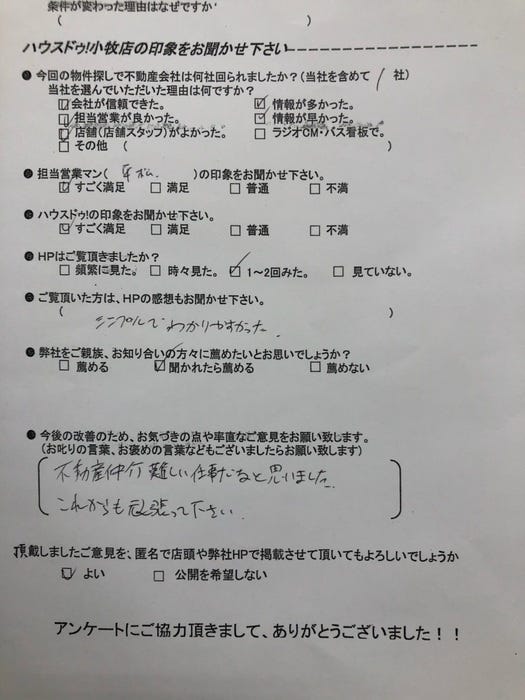 条件が変わった理由はなぜですか
( )
ハウスドゥ!小牧店の印象をお聞かせ下さい
● 今回の物件探しで不動産会社は何社回られましたか?(当社を含めて 1 社)
当社を選んでいただいた理由は何ですか?
☑ 会社が信頼できた。 ☑ 情報が多かった。
☑ 担当営業が良かった。 ☑ 情報が早かった。
☑ 店舗(店舗スタッフ)がよかった。 □ ラジオCM・バス看板で。
□ その他 ( )
● 担当営業マン( 平松 )の印象をお聞かせ下さい。
☑ すごく満足 □ 満足 □ 普通 □ 不満
● ハウスドゥ!の印象をお聞かせ下さい。
☑ すごく満足 □ 満足 □ 普通 □ 不満
● HPはご覧頂きましたか?
□ 頻繁に見た。 □ 時々見た。 ☑ 1~2回みた。 □ 見ていない。
● ご覧頂いた方は、HPの感想もお聞かせ下さい。
( シンプルでわかりやすかった。 )
● 弊社をご親族、お知り合いの方々に薦めたいとお思いでしょうか?
□ 薦める ☑ 聞かれたら薦める □ 薦めない
● 今後の改善のため、お気づきの点や率直なご意見をお願い致します。
(お叱りの言葉、お褒めの言葉などもございましたらお願い致します)
不動産仲介 難しい仕事だなと思いました
これからも頑張って下さい。
頂戴しましたご意見を、匿名で店頭や弊社HPで掲載させて頂いてもよろしいでしょうか
☑ よい □ 公開を希望しない
アンケートにご協力頂きまして、ありがとうございました!!